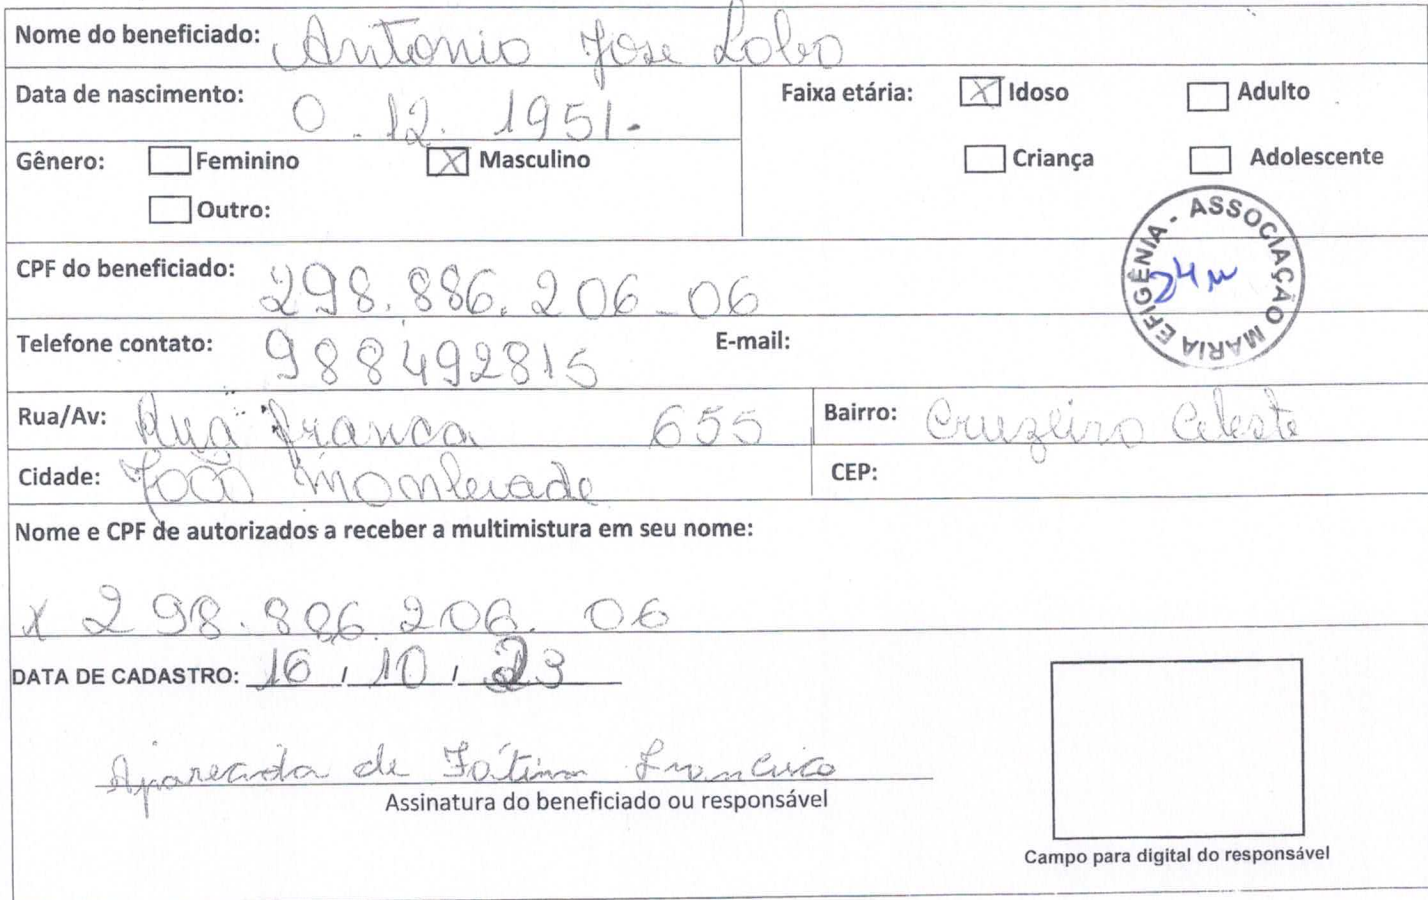 Nome do beneficiado: Antonio Jose Lobo
Data de nascimento: 0.12.1951.
Faixa etária: [X] Idoso [ ] Adulto
[ ] Criança [ ] Adolescente
Gênero: [ ] Feminino [X] Masculino
[ ] Outro:
CPF do beneficiado: 298.886.206-06
ASSOCIAÇÃO MARIA EFIGÊNIA -
Telefone contato: 988492815 E-mail:
Rua/Av: Rua franca 655 Bairro: Cruzeiro Celeste
Cidade: João Monlevade CEP:
Nome e CPF de autorizados a receber a multimistura em seu nome:
x 298.886.206.06
DATA DE CADASTRO: 16/10/23
Aparecida de Fátima Francisco
Assinatura do beneficiado ou responsável
Campo para digital do responsável